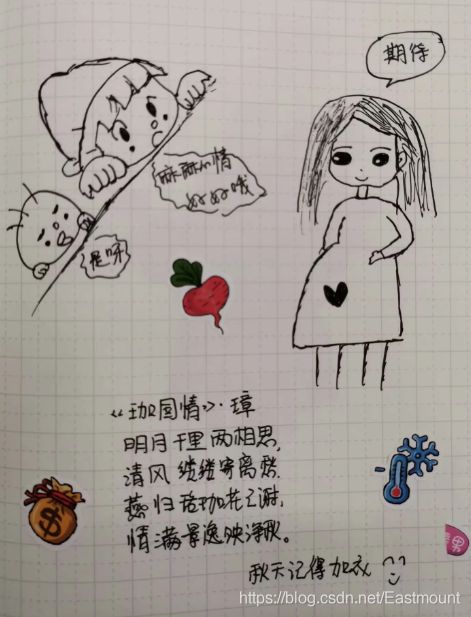 期待
麻麻心情
好好哦
是呀
《珈国情》·璋
明月千里两相思,
清风缕缕寄离愁.
燕归珞珈花已谢,
情满景逸映深秋。
秋天记得加衣
https://blog.csdn.net/Eastmount